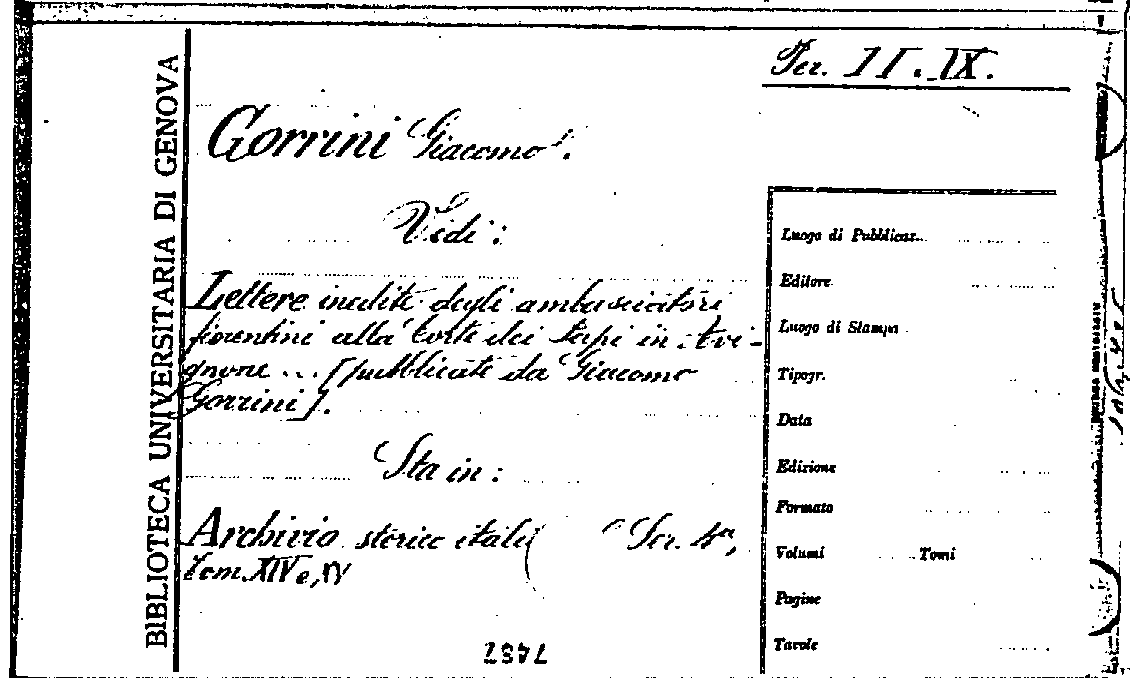 Per. II. IX.
BIBLIOTECA UNIVERSITARIA DI GENOVA
Gorrini Giacomo.
Vedi:
Lettere inedite degli ambasciatori
fiorentini alla Corte dei Papi in Avi-
gnone ... [pubblicate da Giacomo
Gorrini].
Sta in:
Archivio storico itali Ser. 4a,
Tom. XIV e, XV
7487
Luogo di Pubblicaz.
Editore
Luogo di Stampa
Tipogr.
Data
Edizione
Formato
Volumi Tomi
Pagine
Tavole